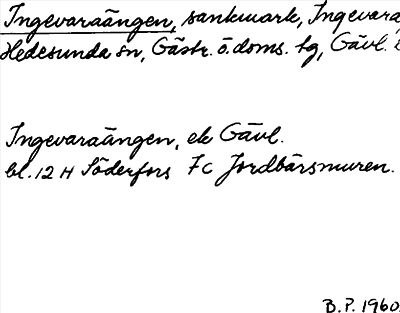 Ingevaraängen, sankmark, Ingevara
Hedesunda sn, Gästr. ö. doms. tg, Gävl.
Ingevaraängen, ek Gävl.
bl. 12 H Söderfors 7c Jordbärsmuren.
B.P. 1960.